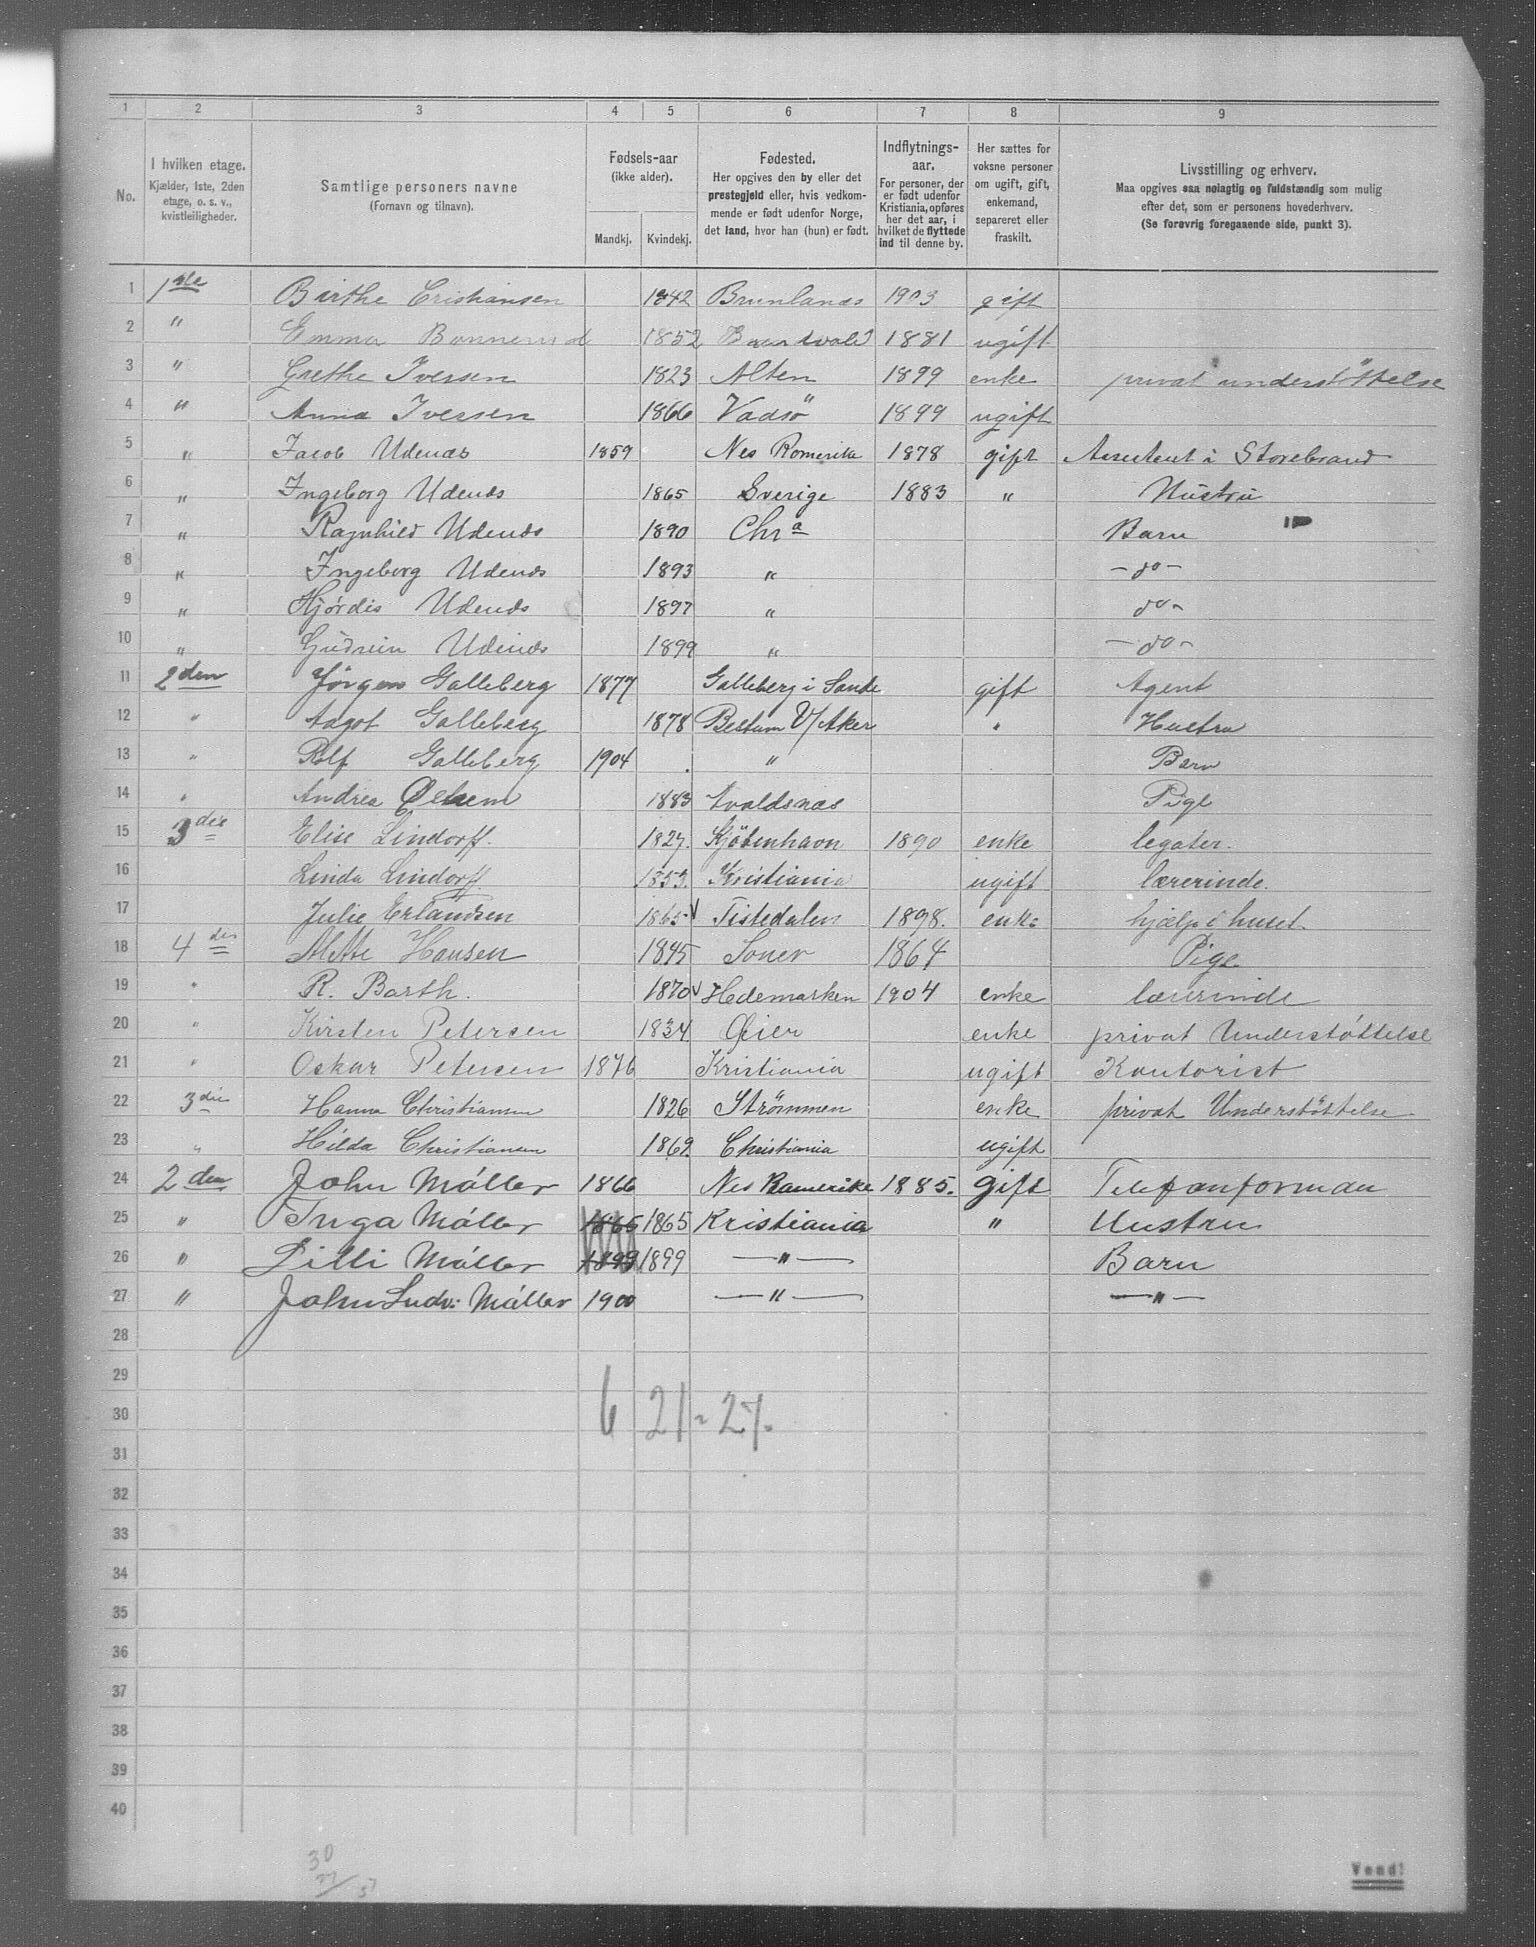 1 2 3 4 5 6 7 8 9
No. I hvilken etage. Kjælder, 1ste, 2den etage, o. s. v., kvistleiligheder. Samtlige personers navne (Fornavn og tilnavn). Fødsels-aar (ikke alder). Mandkj. Kvindekj. Fødested. Her opgives den by eller det prestegjeld eller, hvis vedkommende er født udenfor Norge, det land, hvor han (hun) er født. Indflytnings-aar. For personer, der er født udenfor Kristiania, opføres her det aar, i hvilket de flyttede ind til denne by. Her sættes for voksne personer om ugift, gift, enkemand, separeret eller fraskilt. Livsstilling og erhverv. Maa opgives saa nøiagtig og fuldstændig som mulig efter det, som er personens hovederhverv. (Se forøvrig foregaaende side, punkt 3).
1 1ste Birthe Cristiansen 1842 Brunlanæs 1903 gift
2 " Emma 1852 1881 ugift
3 " Grethe Iversen 1823 Alten 1899 enke privat understøttelse
4 " Anna Iversen 1866 Vadsö 1899 ugift
5 " Jacob Udenæs 1859 Nes Romerike 1878 gift Assistent i Storebrand
6 " Ingeborg Udenæs 1865 Sverige 1883 " Hustru
7 " Ragnhild Udenæs 1890 Chra Barn
8 " Ingeborg Udenæs 1893 " - do -
9 " Hjørdis Udenæs 1897 " do -
10 " Gudrun Udenæs 1899 " - do -
11 2den Jørgen Galleberg 1877 Galleberg i Sande gift Agent
12 " Aagot Galleberg 1878 Bestum V/Aker " Hustru
13 " Rolf Galleberg 1904 " Barn
14 " Andrea 1883 Avaldsnæs Pige
15 3die Elise Lindorff. 1827. Kjöbenhavn 1890 enke legater.
16 Linda Lindorff. 1853. Kristiania ugift lærerinde.
17 Julie Erlandsen 1865 Tistedalen 1898. enke hjælp i huset.
18 4de Mette Hansen 1845 Soner 1864 Pige
19 " R. Barth. 1870 Hedemarken 1904 enke lærerinde
20 " Kirsten Petersen 1834 Øier enke privat Understøttelse
21 " Oskar Petersen 1876 Kristiania ugift Kontorist
22 3die Hanna Christiansen 1826 Strömmen enke privat Understöttelse
23 " Hilda Christiansen 1869. Christiania ugift
24 2den John Møller 1866 Nes Romerike 1885. gift Telefonforman
25 " Inga Møller 1865 1865 Kristiania " Hustru
26 " Lilli Møller 1899 1899 — " — Barn
27 " John Ludv: Møller 1900 — " — — " —
28
29
30 6 21 - 27.
31
32
33
34
35
36
37
38
39
40
30
Vend!